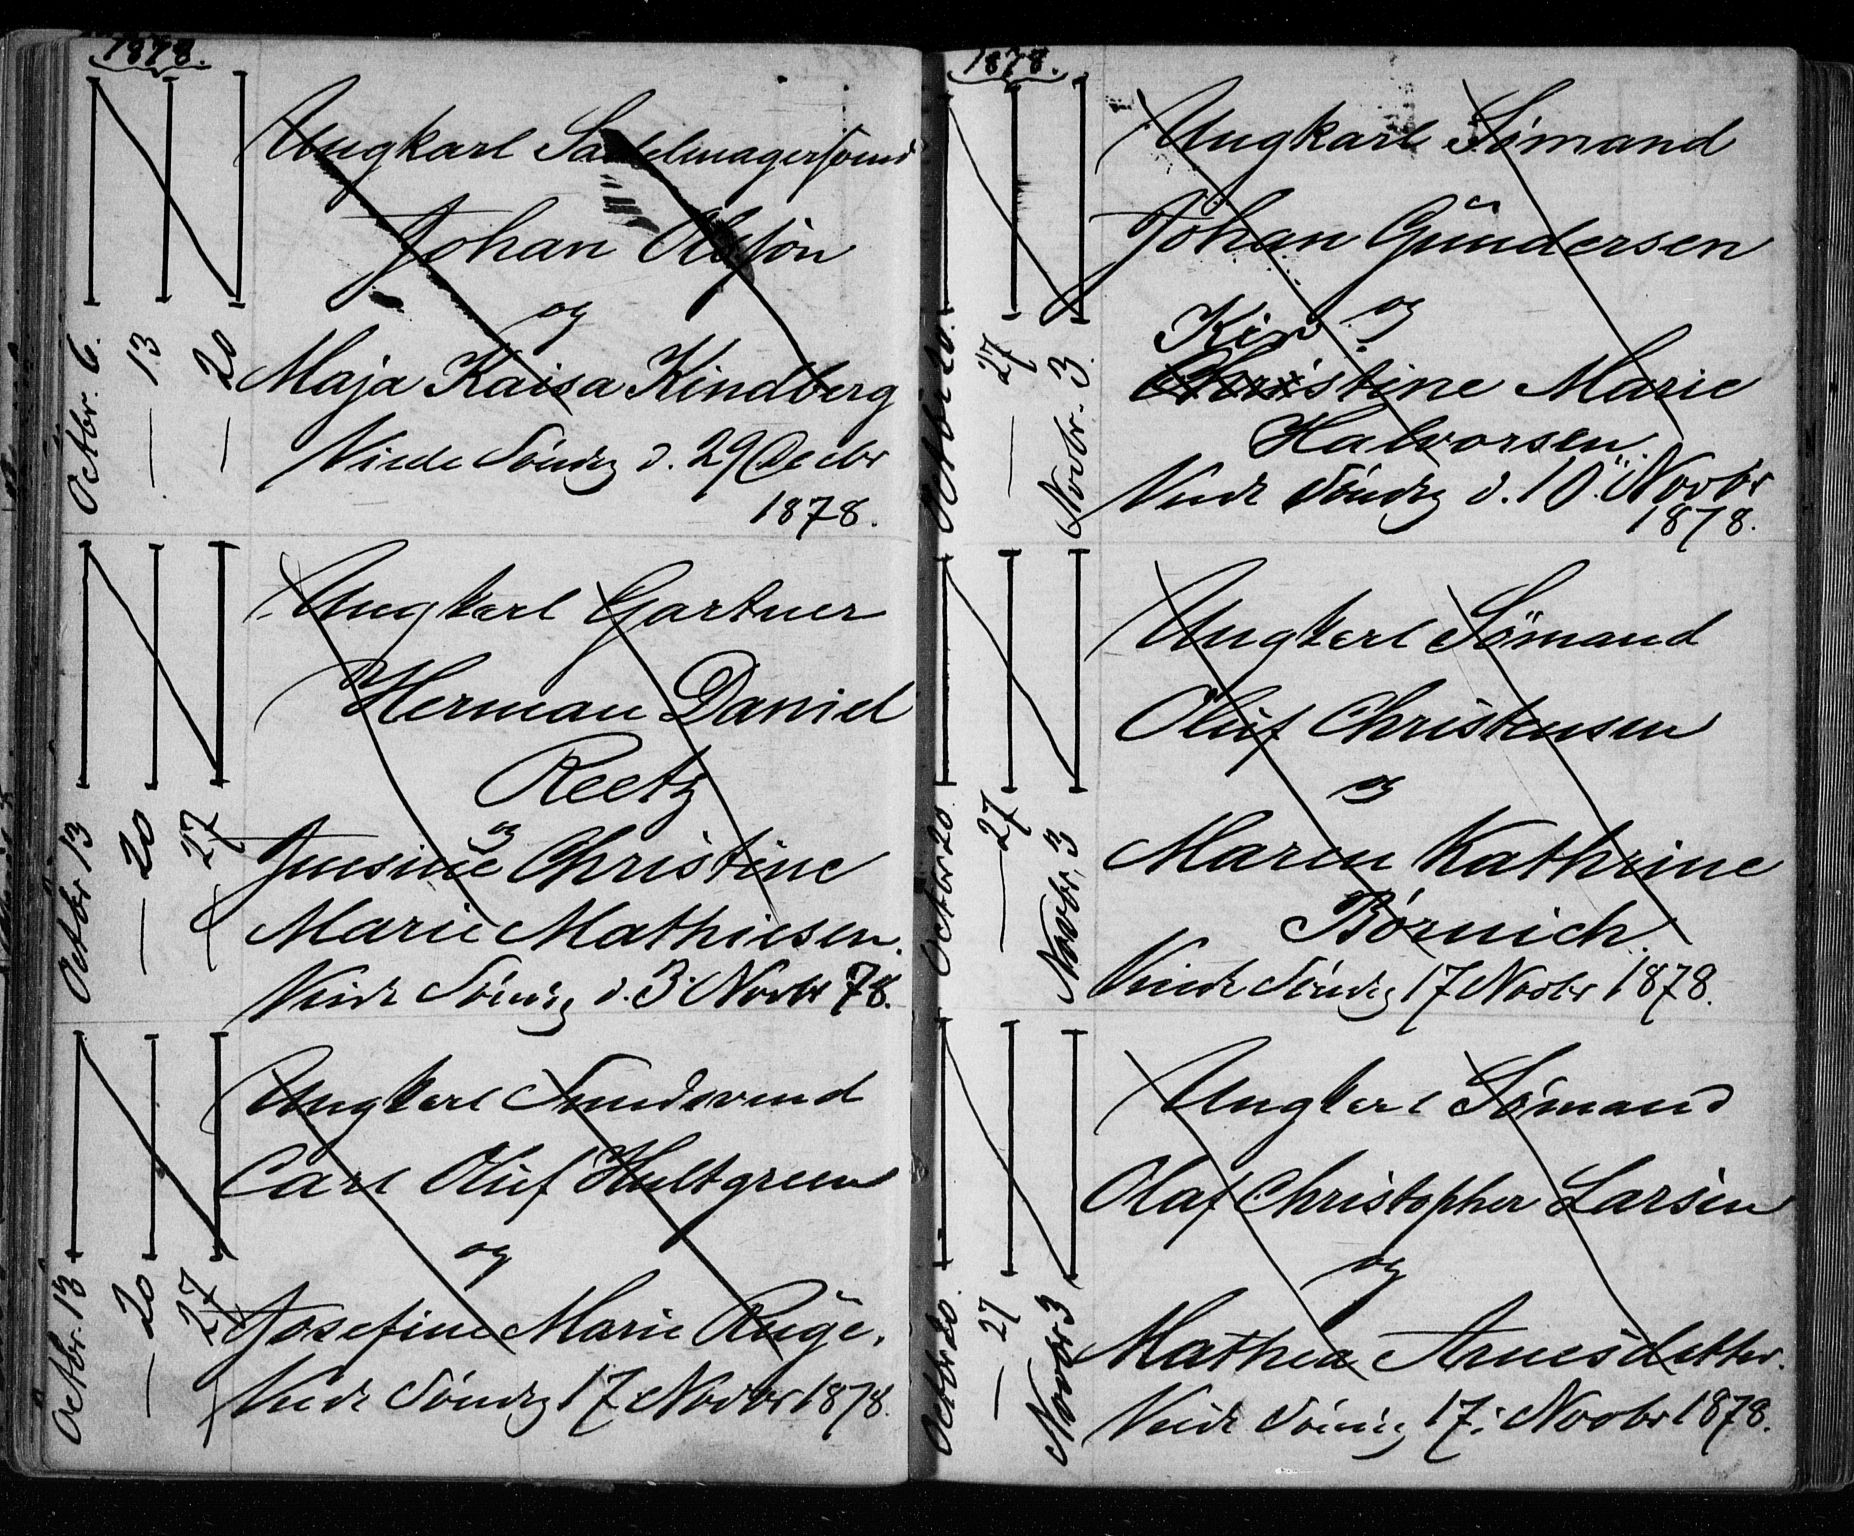 1878.
Octbr. 6.
— 13
— 20
Ungkarl Sadelmagersvend
Johan Olsson
og
Maja Kaisa Kindberg
Viede Søndag d. 29 Decbr
1878.
Octbr 13
— 20
— 27
Ungkarl Gartner
Herman Daniel
Reetz
og
Jensine Christine
Marie Mathiesen.
Viede Søndag d. 3 Novbr 78.
Octbr. 13
— 20
— 27
Ungkarl
Carl Oluf Hultgreen
og
Josefine Marie Ruge.
Viede Søndag 17 Novbr 1878.
1878.
Octbr 20.
— 27
Novbr. 3.
Ungkarl Sømand
Johan Gundersen
og
Kir
Christine Marie
Halvorsen.
Viede Søndag d. 10. Novbr
1878.
Octbr 20
— 27
Novbr, 3
Ungkarl Sømand
Oluf Christensen
og
Maren Kathrine
Børnich.
Viede Søndag 17 Novbr 1878.
Octbr 20.
— 27
Novbr 3
Ungkarl Sømand
Olaf Christopher Larsen
og
Mathea Arnesdatter.
Viede Søndag 17. Novbr 1878.